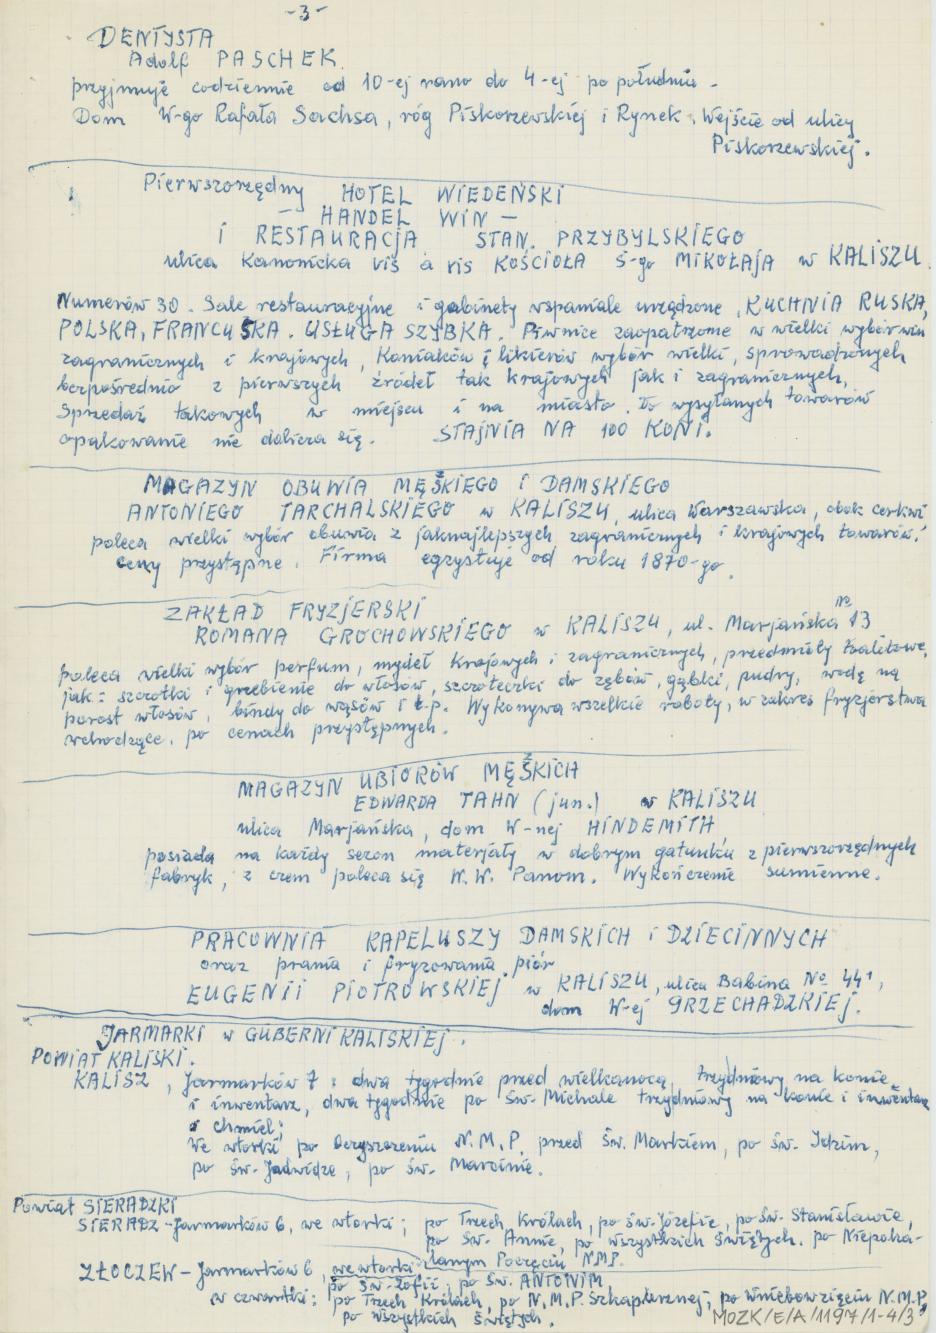 -3-
DENTYSTA
Adolf PASCHEK
przyjmuje codziennie od 10-ej rano do 4-ej po południu -
Dom W-go Rafała Sachsa, róg Piskorzewskiej i Rynek. Wejście od ulicy
Piskorzewskiej.
Pierwszorzędny HOTEL WIEDEŃSKI
- HANDEL WIN -
i RESTAURACJA STAN. PRZYBYLSKIEGO
ulica Kanonicka vis à vis KOŚCIOŁA Ś-go MIKOŁAJA w KALISZU.
Numerów 30. Sale restauracyjne i gabinety wspaniale urządzone, KUCHNIA RUSKA,
POLSKA, FRANCUSKA. USŁUGA SZYBKA. Piwnice zaopatrzone w wielki wybór win
zagranicznych i krajowych, Koniaków i likierów wybór wielki, sprowadzonych
bezpośrednio z pierwszych źródeł tak krajowych jak i zagranicznych,
Sprzedaż takowych w miejscu i na miasto. Do wysyłanych towarów
opakowanie nie dolicza się. STAJNIA NA 100 KONI.
MAGAZYN OBUWIA MĘŻKIEGO i DAMSKIEGO
ANTONIEGO TARCHALSKIEGO w KALISZU, ulica Warszawska, obok cerkwi
poleca wielki wybór obuwia z jaknajlepszych zagranicznych i krajowych towarów,
ceny przystępne. Firma egzystuje od roku 1870-go.
ZAKŁAD FRYZJERSKI
ROMANA GROCHOWSKIEGO w KALISZU, ul. Marjańska № 13
poleca wielki wybór perfum, mydeł krajowych i zagranicznych, przedmioty toaletowe,
jak: szczotki i grzebienie do włosów, szczoteczki do zębów, gąbki, pudry, wodę na
porost włosów, bindy do wąsów i t.p. Wykonywa wszelkie roboty, w zakres fryzjerstwa
wchodzące, po cenach przystępnych.
MAGAZYN UBIORÓW MĘŻKICH
EDWARDA TAHN (jun.) w KALISZU
ulica Marjańska, dom W-nej HINDEMITH,
posiada na każdy sezon materjały w dobrym gatunku z pierwszorzędnych
fabryk, z czem poleca się W.W. Panom. Wykończenie sumienne.
PRACOWNIA KAPELUSZY DAMSKICH i DZIECINNYCH
oraz prania i fryzowania piór
EUGENII PIOTROWSKIEJ w KALISZU, ulica Babina № 44,
dom W-ej GRZECHADZKIEJ.
JARMARKI w GUBERNI KALISKIEJ.
POWIAT KALISKI.
KALISZ, Jarmarków 7: dwa tygodnie przed wielkanocą, trzydniowy na konie
i inwentarz, dwa tygodnie po św. Michale trzydniowy na konie i inwentarz
i chmiel;
We wtorki po Oczyszczeniu N.M.P. przed Św. Markiem, po św. Idzim,
po Św. Jadwidze, po św. Marcinie.
Powiat SIERADZKI
SIERADZ - Jarmarków 6, we wtorki; po Trzech Królach, po św. Józefie, po św. Stanisławie,
po św. Annie, po wszystkich świętych. po Niepoka-
lanym Poczęciu NMP.
ZŁOCZEW - Jarmarków 6, we wtorki
po św. Zofii, po św. ANTONIM,
w czwartki: po Trzech Królach, po N.M.P. Szkaplerznej, po wniebowzięciu N.M.P.
po wszystkich świętych.
MOZK/E/A/1197/1-4/3